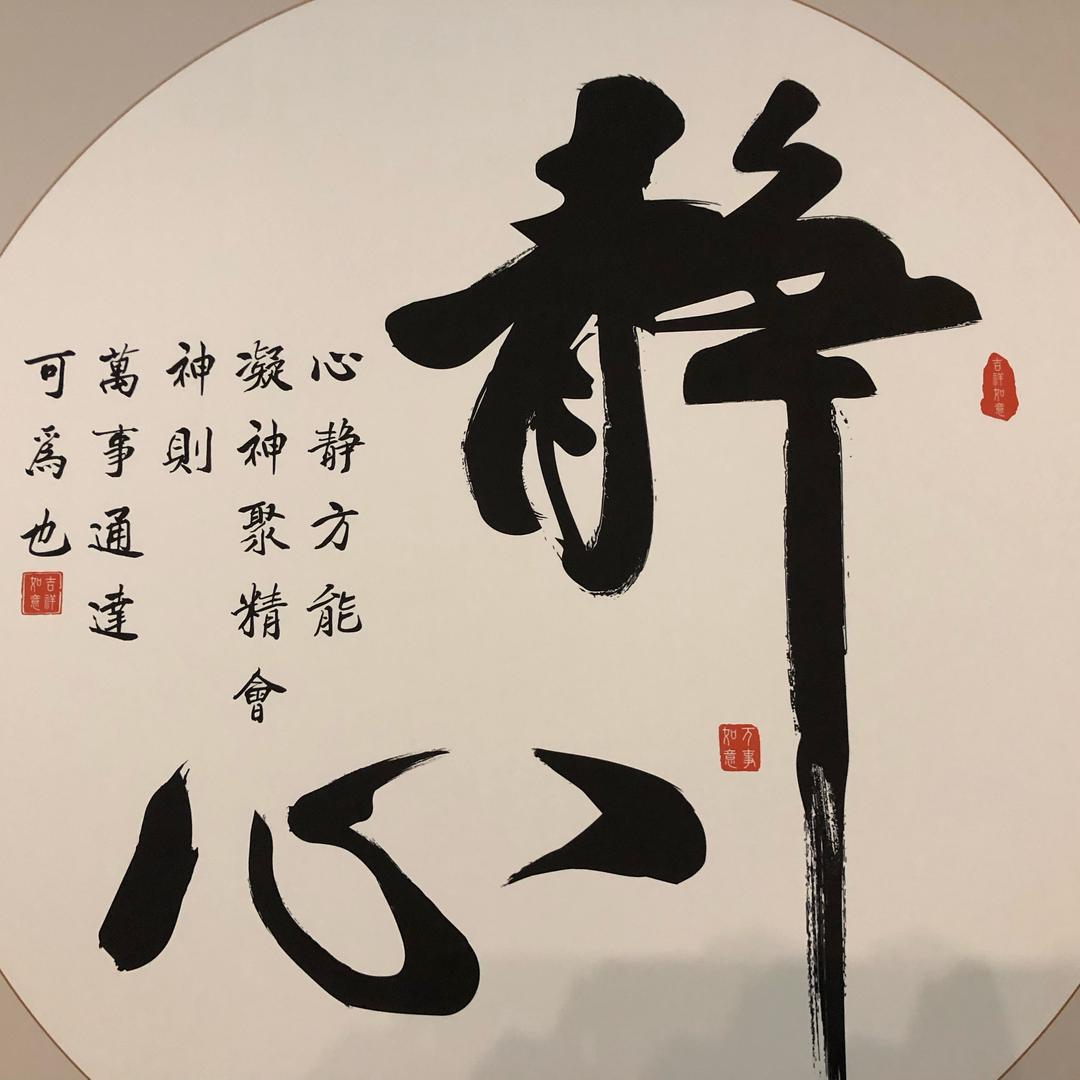 静心
心静方能
凝神聚精會
神則
萬事通達
可爲也
吉祥如意
万事如意
吉祥如意